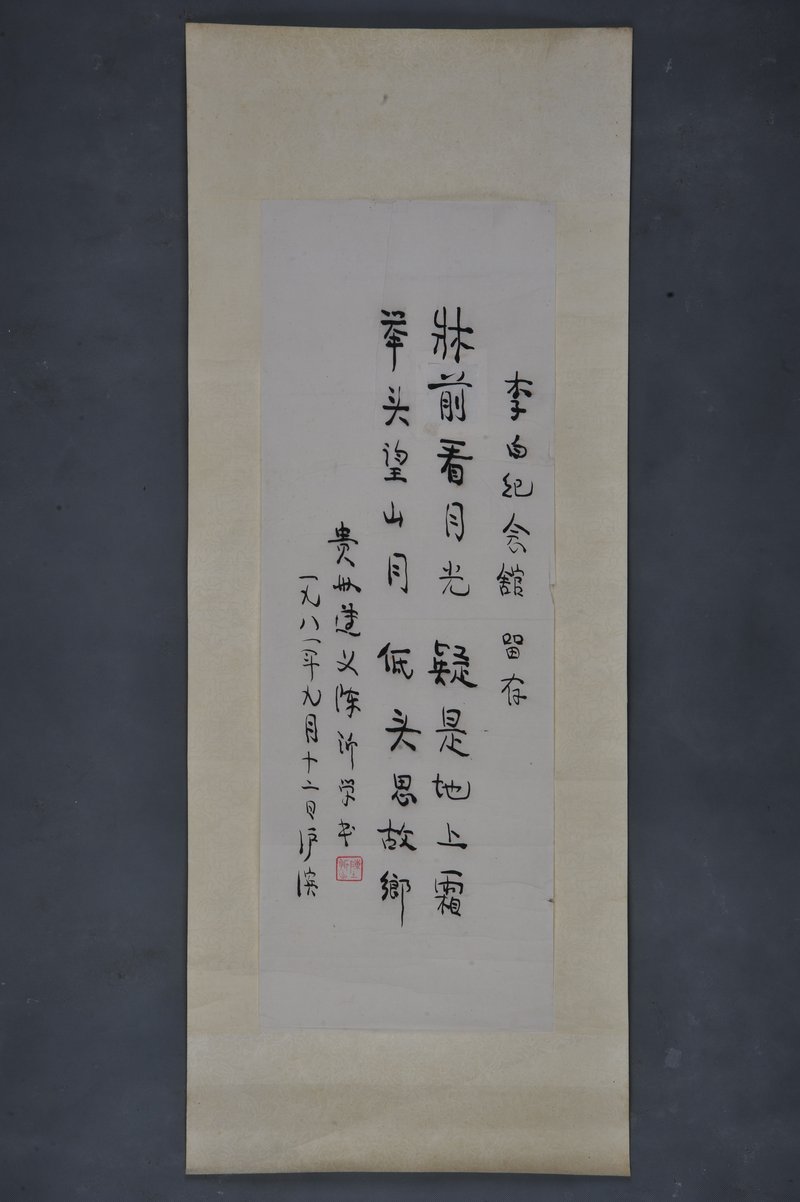 李白纪念馆 留存
牀前看月光 疑是地上霜
举头望山月 低头思故鄉
贵州遵义陈沂学书
一九八一年九月十二日沪滨